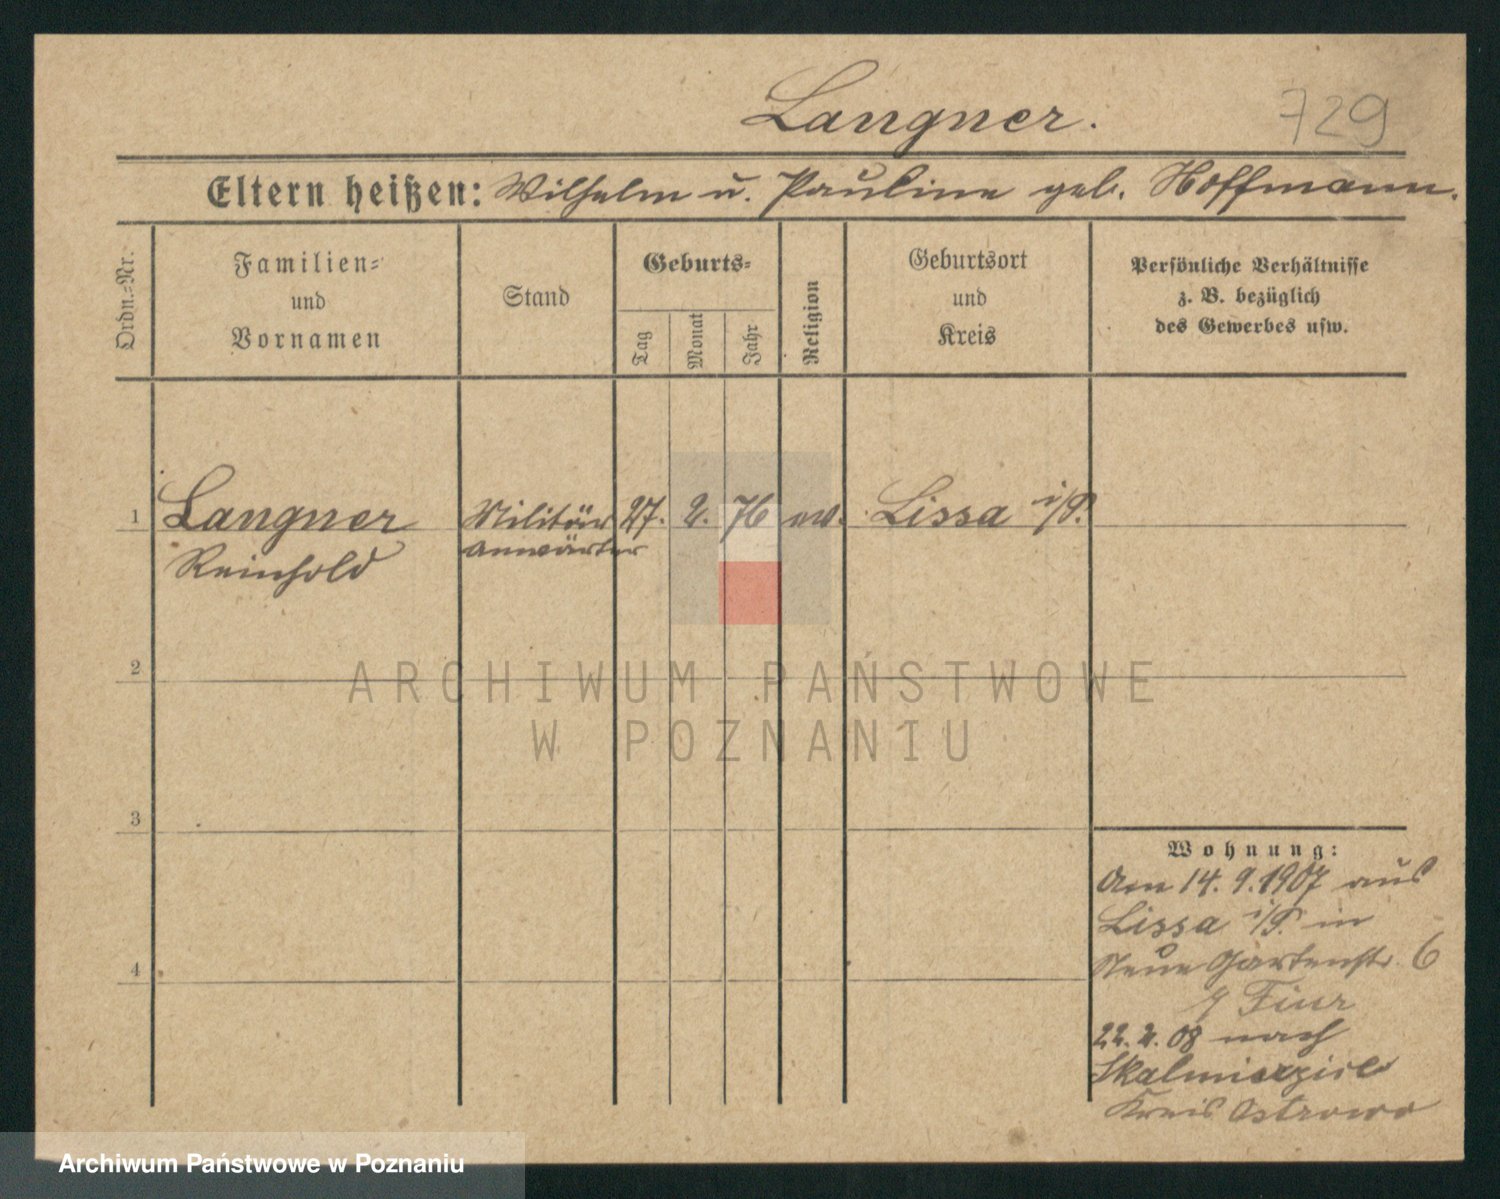 Langner.
729
Eltern heißen: Wilhelm u. Pauline geb. Hoffmann.
Ordn.-Nr.
Familien-
und
Vornamen
Stand
Geburts-
Tag
Monat
Jahr
Religion
Geburtsort
und
Kreis
Persönliche Verhältnisse
z. B. bezüglich
des Gewerbes usw.
1 Langner Militär 27. 2. 76 ev. Lissa i/P.
Reinhold anwärter
2
ARCHIWUM PAŃSTWOWE
W POZNANIU
3
Wohnung:
Am 14. 9. 1907 aus
Lissa i/P. in
Neue Gartenstr. 6
4
22. 2. 08 nach
Skalmierzice
Kreis Ostrowo
Archiwum Państwowe w Poznaniu